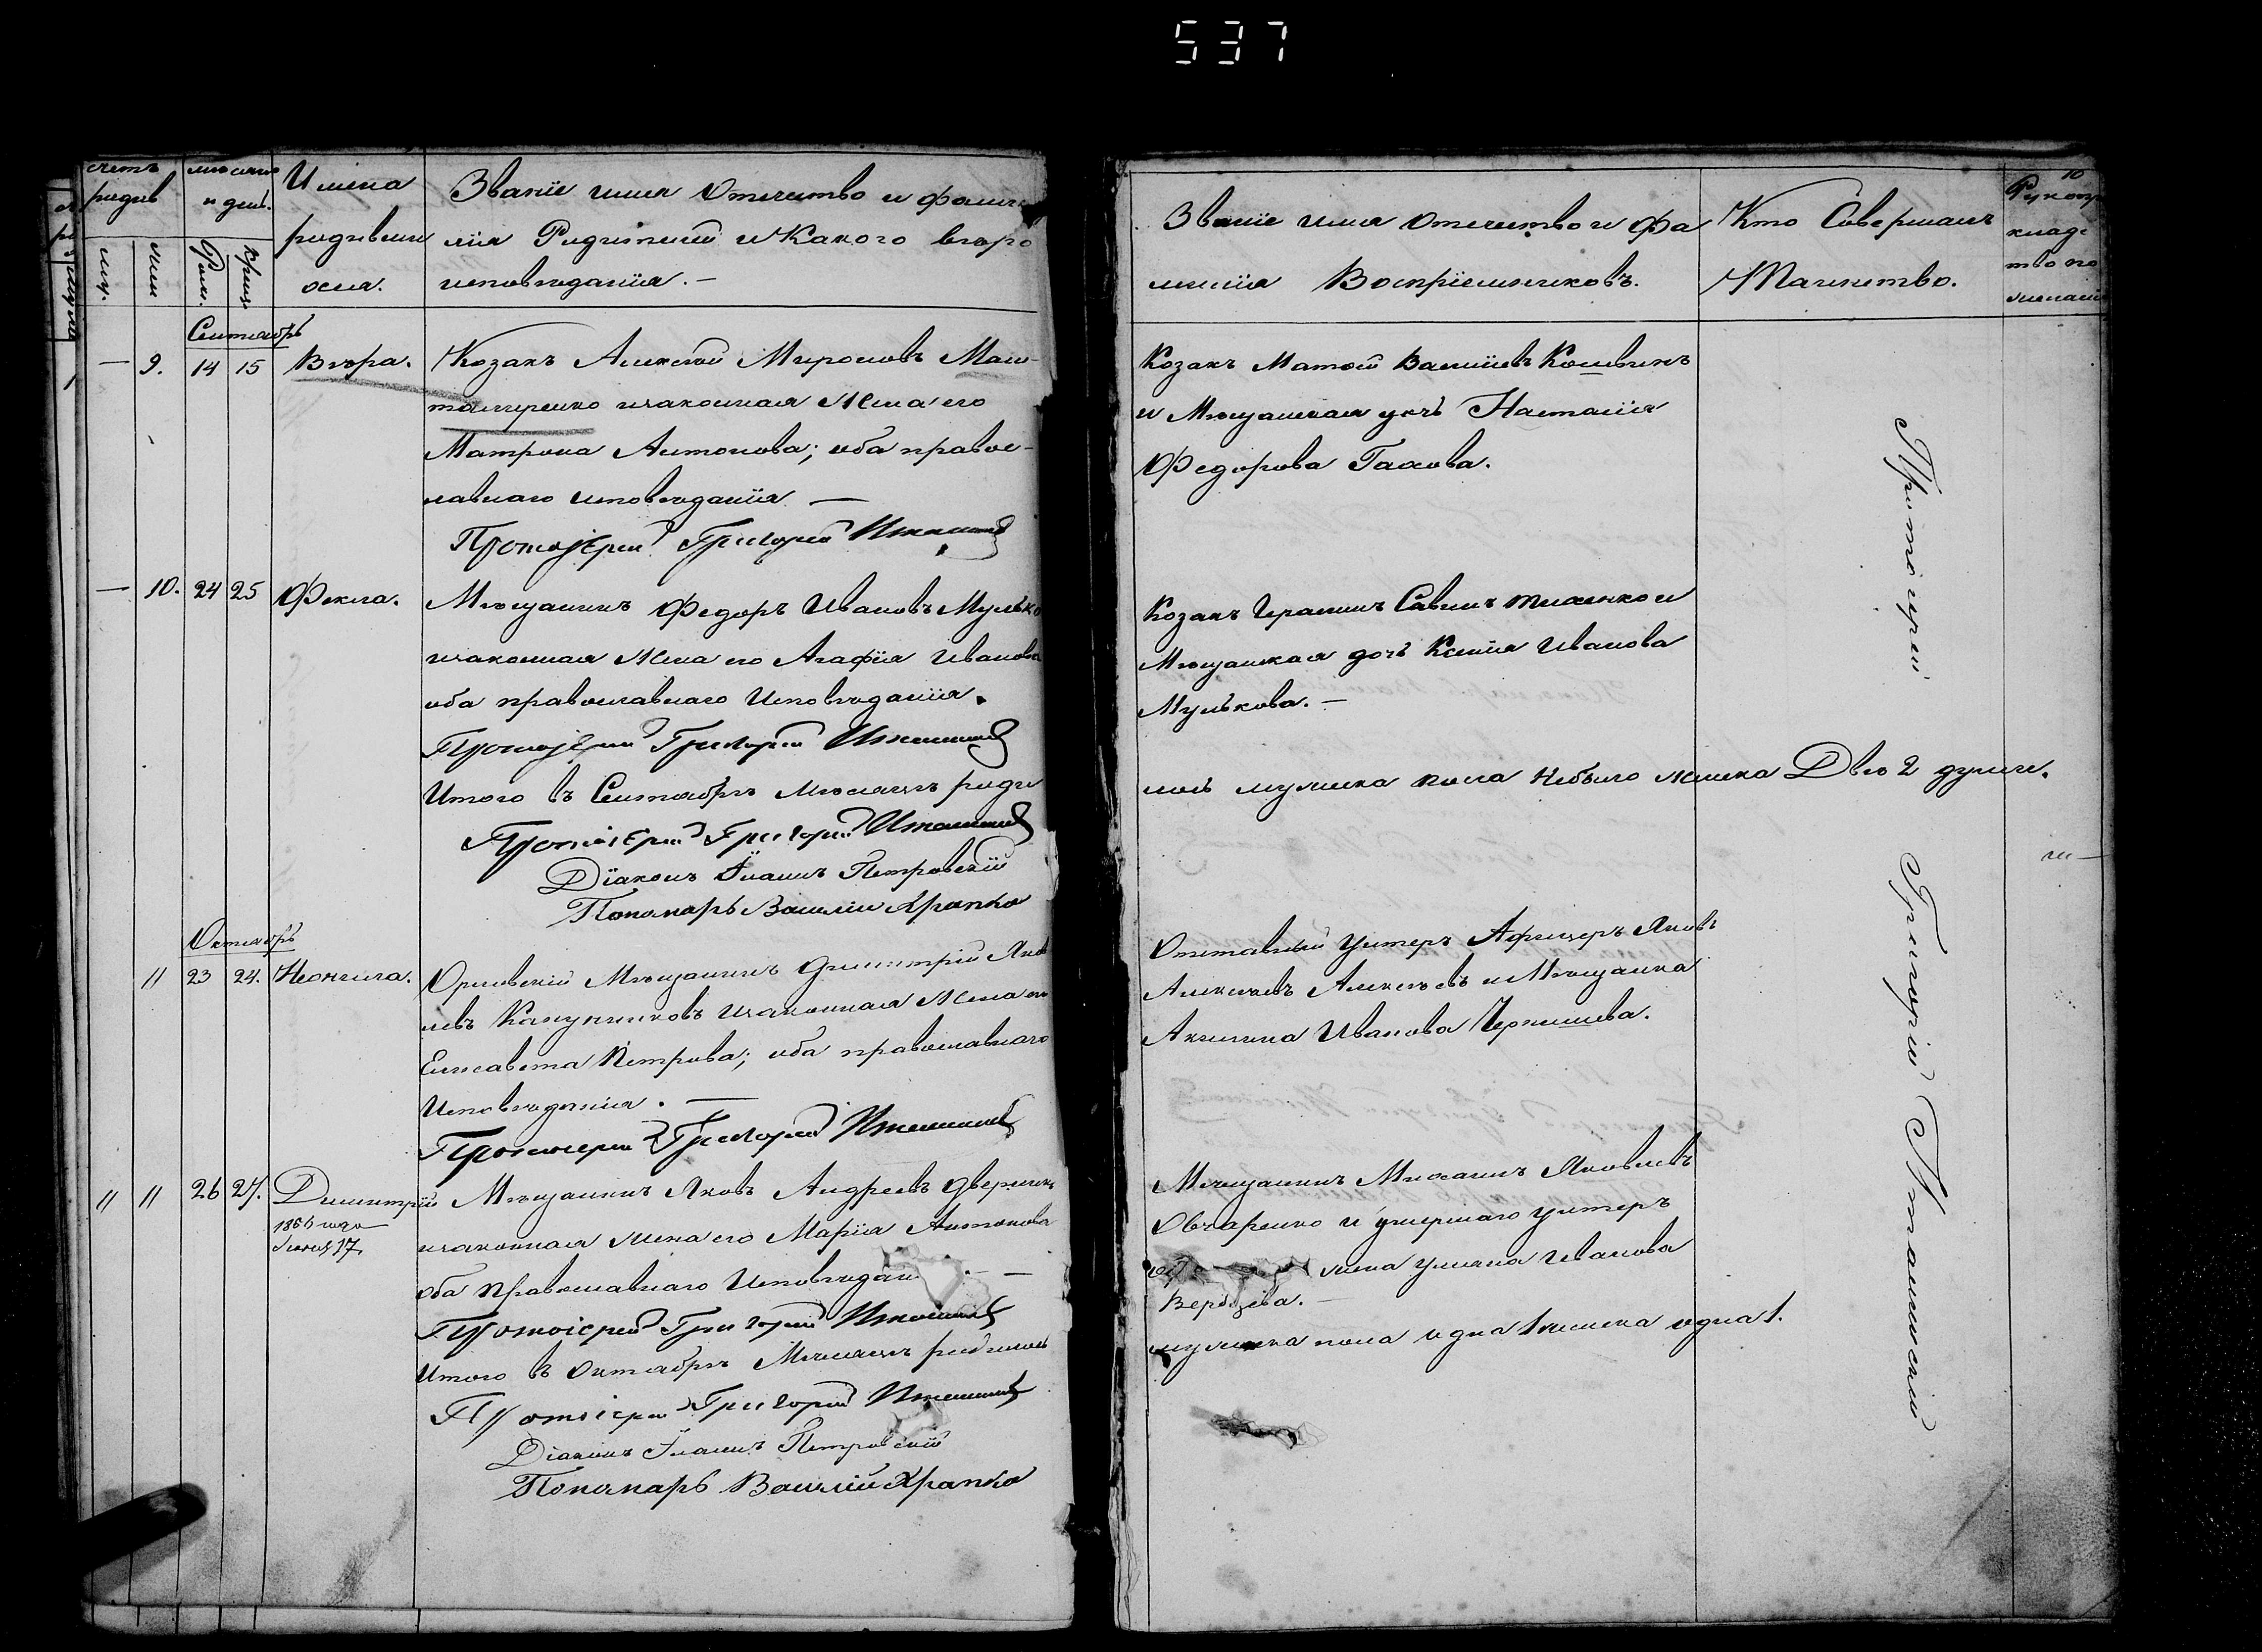 537
счетъ
родив
муж.
жен
мѣсяцъ
и день.
Рож.
Крещ.
Имена
родивши
хся.
Званїе имя Отечество и фами
лїя Родителей и Какого вѣро
исповѣданїя. —
Сентябрь
— 9. 14 15 Вѣра.
Козакъ Алексѣй Мироновъ
оженко изаконная Жена его
Матрона Антонова; оба право-
славнаго исповѣданїя —
Протоіерей Григорій
— 10. 24 25 Ѳекла.
Мѣщанинъ Ѳедоръ Ивановъ Мулько
изаконная Жена его Агафїя Иванова
оба православнаго Исповѣданїя.
Протоіерей Григорій
Итого въ Сентябрѣ Мѣсяцѣ роди
Протоіерей Григорій
Дїаконъ Петровскїй
Пономарь Василїй Храпко
Октябрь
11 23 24. Неонила.
Орловскїй Мѣщанинъ Димитрїй Яков
левъ Калуниковъ изаконная Жена его
Елисавета Петрова; оба православнаго
Исповѣданїя. —
Протоіерей Григорій
11 11 26 27. Димитрїй
Мѣщанинъ Яковъ Андреевъ
изаконная жена его Марїя Антонова
оба Православнаго Исповѣдан —
Протоіерей Григорій
Итого въ Октябрѣ Мѣсяцѣ родилось
Протоіерей Григорій
Дїаконъ Петровскїй
Пономарь Василїй Храпко
Званїе имя отечество и Фа
милїя Воспрїемниковъ.
Кто Совершалъ
Таинство.
10
Рукопр
клад
тво по
желанїю
Козакъ Матѳей Василїевъ
и Мѣщанская дочь Настасїя
Ѳедорова Гахова.
Козакъ Савинъ и
Мѣщанская дочь Ксенїя Иванова
Мулькова. —
лось мужеска пола небыло женска Двѣ 2 души.
Отставный унтеръ Афицеръ Яковъ
Алексѣевъ Алексѣевъ и Мѣщанка
Акилина Иванова Чернышева.
Мѣщанинъ Михаилъ Яковлевъ
Овчаренко и умершаго унтеръ
жена Улїяна Иванова
мужеска пола одна 1 женска одна 1.
Протоіерей Григорій